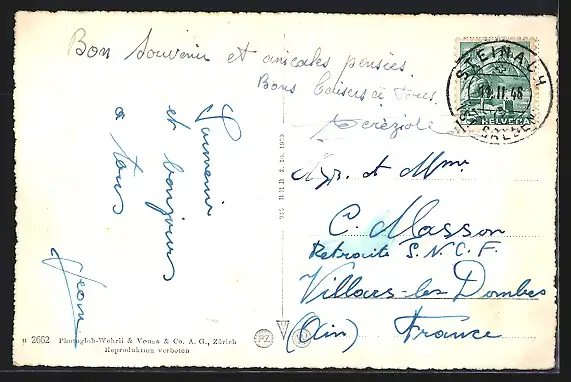 Bon Souvenir et amicales pensées.
Bons baisers à tous.
Souvenir
et bonjour
à tous
Jean
STEINACH
HELVETIA
Mr. et Mme
C. Masson
Retraité S.N.C.F.
Villars-les-Dombes
(Ain) France
2662 Photoglob-Wehrli & Vouga & Co. A. G., Zürich
Reproduktion verboten
PZ